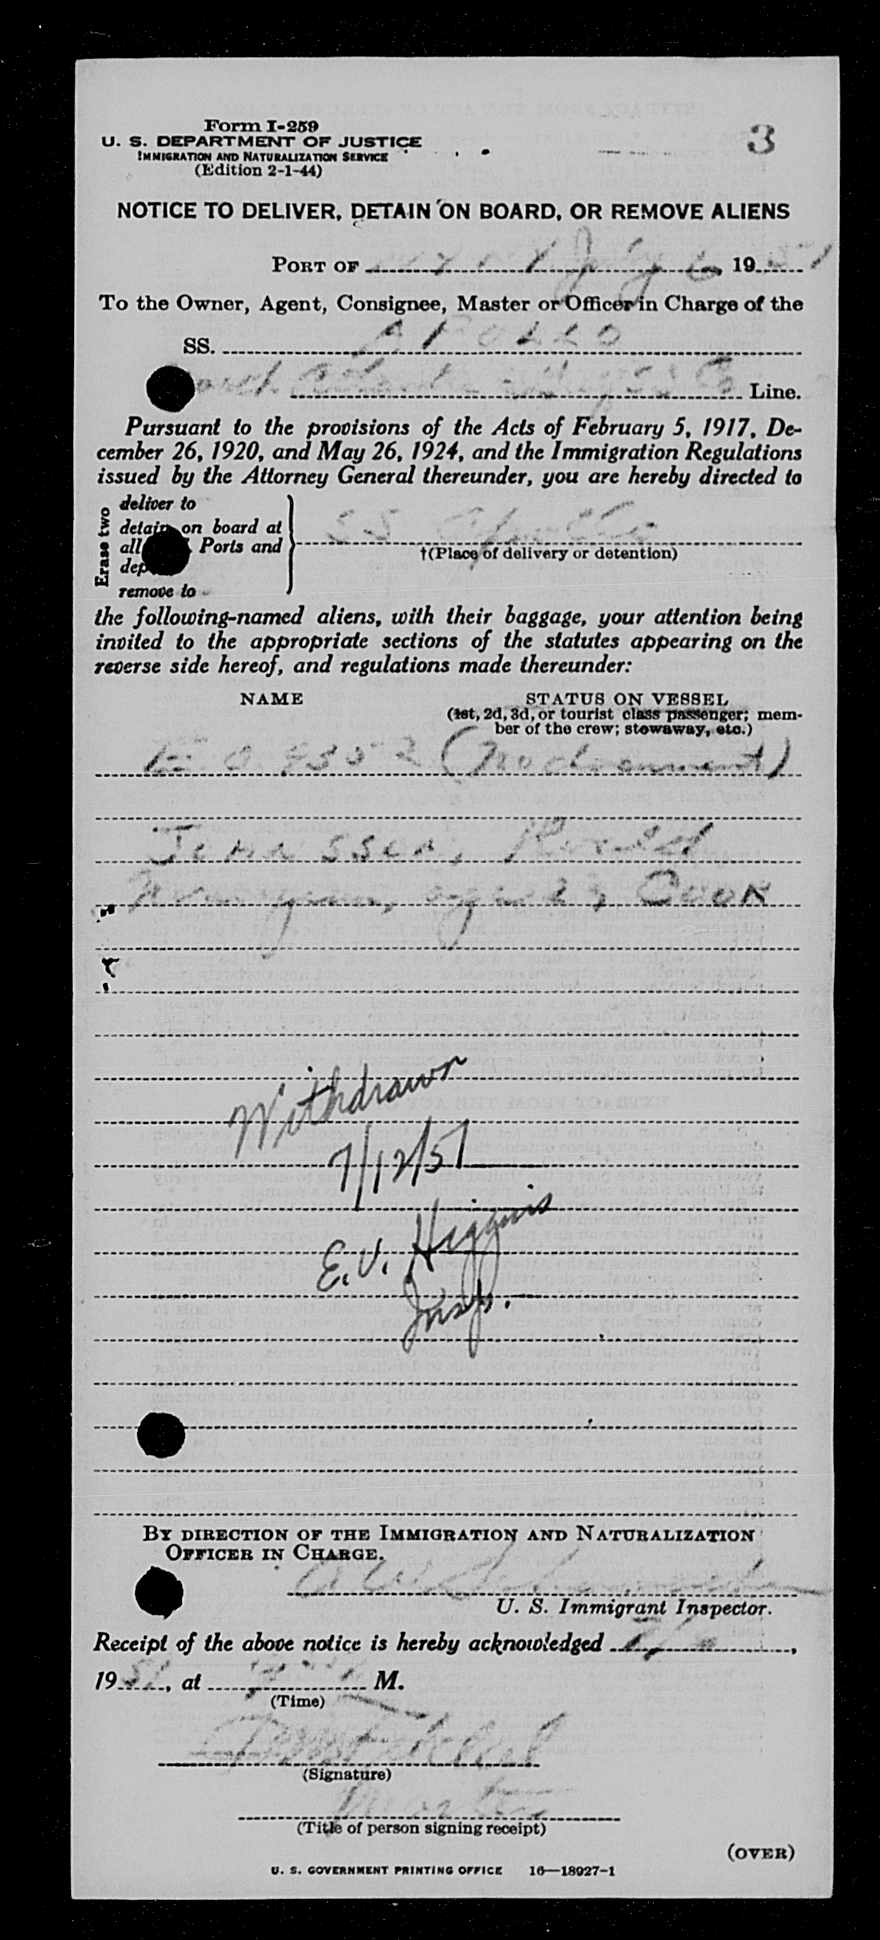 Form I-259
3
U. S. DEPARTMENT OF JUSTICE
IMMIGRATION AND NATURALIZATION SERVICE
(Edition 2-1-44)
NOTICE TO DELIVER, DETAIN ON BOARD, OR REMOVE ALIENS
PORT OF July 6, 1951
To the Owner, Agent, Consignee, Master or Officer in Charge of the
SS. APOLLO
Line.
Pursuant to the provisions of the Acts of February 5, 1917, De-
cember 26, 1920, and May 26, 1924, and the Immigration Regulations
issued by the Attorney General thereunder, you are hereby directed to
Erase two
deliver to
detain on board at
all Ports and
remove to
SS Apollo
†(Place of delivery or detention)
the following-named aliens, with their baggage, your attention being
invited to the appropriate sections of the statutes appearing on the
reverse side hereof, and regulations made thereunder:
NAME STATUS ON VESSEL
(1st, 2d, 3d, or tourist class passenger; mem-
ber of the crew; stowaway, etc.)
(No document)
Johanssen, Harald
Norwegian, aged 23, COOK
Withdrawn
7/12/51
E.V. Higgins
Insp.
BY DIRECTION OF THE IMMIGRATION AND NATURALIZATION
OFFICER IN CHARGE.
U. S. Immigrant Inspector.
Receipt of the above notice is hereby acknowledged 7/6,
1951, at M.
(Time)
(Signature)
Master
(Title of person signing receipt)
(OVER)
U. S. GOVERNMENT PRINTING OFFICE 16—18927-1